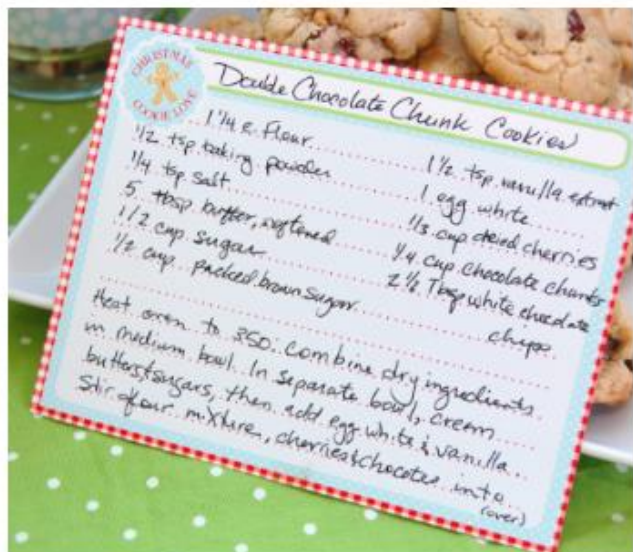 CHRISTMAS
COOKIE LOVE
Double Chocolate Chunk Cookies
1 1/4 c. Flour
1/2 tsp baking powder
1/4 tsp salt
5 tbsp butter, softened
1/2 cup sugar
1/2 cup packed brown sugar
1 1/2 tsp vanilla extract
1 egg white
1/3 cup dried cherries
1/4 cup chocolate chunks
2 1/2 Tbsp white chocolate
chips
Heat oven to 350. Combine dry ingredients
in medium bowl. In separate bowl, cream
butter & sugars, then add egg white & vanilla.
Stir flour mixture, cherries & chocolates into
(over)